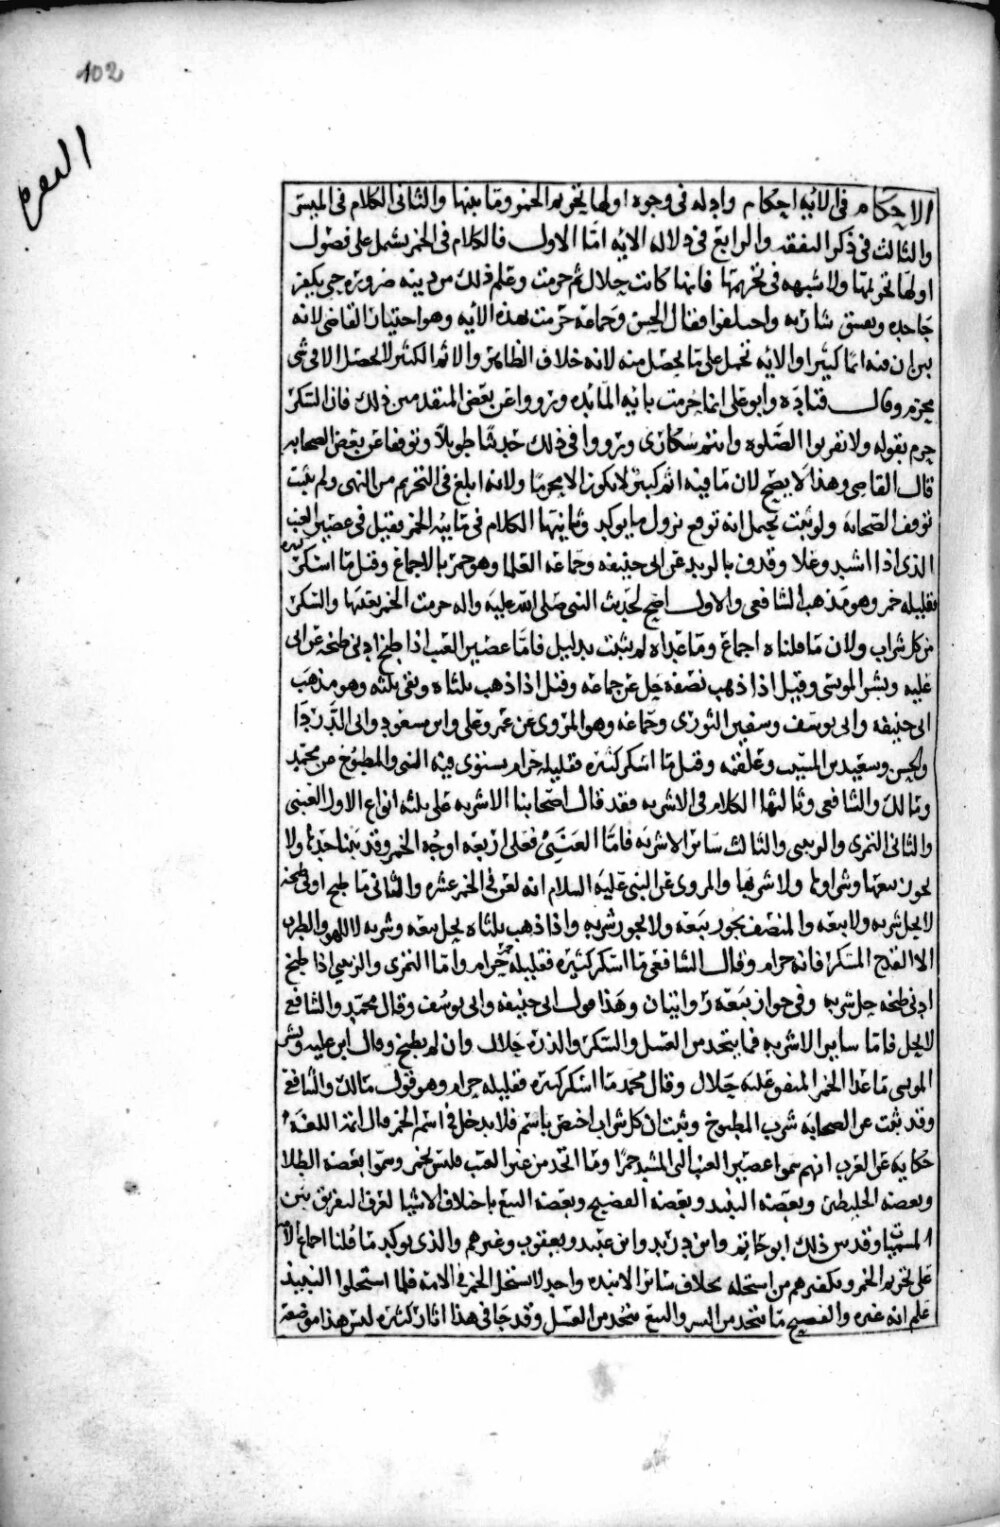 102
البقرة
الاحكام في الايه احكام وادله في وجوه اولها تحريم الخمر وما بينها والثاني الكلام في الميسر
والثالث في ذكر النفقه والرابع في دلاله الايه امّا الاول فالكلام في الخمر يشمل على فصول
اولها تحريمها ولا شبهه في تحريمها فانها كانت حلال ثم حرمت وعلم ذلك من دينه ضروره حتى يكفر
جاحده ويفسق شاربه واختلفوا فقال الحسن وجماعه حرّمت بهذه الايه وهو اختيار القاضي لانه
بين ان فيه اثما كبيرا والايه تحمل على ما يحصل منه لانه خلاف الظاهر والاثم الكبير لا يحصل الا في شي
محرم وقال قتاده وابو علي انما حرمت بايه المائده ورووا عن بعض المتقدمين ذلك فان السّكر
حرم بقوله ولا تقربوا الصّلوه وانتم سكارى ورووا في ذلك حديثا طويلا وتوقفا عن بعض الصحابه
قال القاضي وهذا لا يصح لان ما فيه اثم كبير لا يكون الا محرما ولانه ابلغ في التحريم من النهي ولم يثبت
توقف الصّحابه ولو ثبت تحمل انه توقع نزول ما يوكد وثانيها الكلام في مائيه الخمر فقيل في عصير العنب
الذي اذا اشتد وغلا وقذف بالزبد عن ابي حنيفه وجماعه العلما وهو خمر بالاجماع وقيل ما اسكر كثيره
فقليله خمر وهو مذهب الشافعي والاول اصح لحديث النبي صلى الله عليه واله حرمت الخمر بعينها والسّكر
من كل شراب ولان ما قلناه اجماع وما عداه لم يثبت بدليل فامّا عصير العنب اذا طبخ ادنى طبخه عن ابن
عليه وبشر المريسي وقيل اذا ذهب نصفه حل عن جماعه وقيل اذا ذهب ثلثاه وبقي ثلثه وهو مذهب
ابي حنيفه وابي يوسف وسفين الثوري وجماعه وهو المروي عن عمر وعلي وابن مسعود وابي الدّردا
والحسن وسعيد بن المسيّب وعلقمه وقيل ما اسكر كثيره فقليله حرام يستوي فيه الني والمطبوخ عن محمّد
ومالك والشافعي وثالثها الكلام في الاشربه فقد قال اصحابنا الاشربه على ثلثه انواع الاول العنبي
والثاني التمري والزبيبي والثالث سائر الاشربه فامّا العنبيُ فعلى اربعه اوجُه الخمر وقد بيّنا حدها ولا
يجوز بيعها وشراوها ولا شربها والمروي عن النبي عليه السلام انه لعن في الخمر عشره والثاني ما طبخ ادنى طبخه
لا يحل شربه ولا بيعه والمنصّف يجوز بيعه ولا يجوز شربه واذا ذهب ثلثاه يحل بيعه وشربه لا للهو والطرب
الا القدح المسكر فانه حرام وقال الشافعي ما اسكر كثيره فقليله خمر حرام وامّا التمري والزبيبي اذا طبخ
ادنى طبخه حل شربه وفي جواز بيعه روايتان وهذا قول ابي حنيفه وابي يوسُف وقال محمّد والشافعي
لا يحل فامّا ساير الاشربه فما يتخذ من العسل والسّكر والذره حلال وان لم يطبخ وقال ابن عليه وبشر
المريسي ما عدا الخمر المتفق عليه حلال وقال محمد ما اسكر كثيره فقليله حرام وهو قول مالك والشافعي
وقد ثبت عن الصحابه شرب المطبوخ وثبت ان كل شراب اختص باسم فلا يدخل في اسم الخمر قال ائمة اللغه
حكايه عن العرب انهم سموا عصير العنب الني المشتد خمرًا وما اتخذ من غير العنب فليس بخمر وسمّوا بعضه الطلا
وبعضه الخليطين وبعضه النبيذ وبعضه الفضيح وبعضه البتع باختلاف الاشيا لغرض التفريق بين
المسميات وقد بين ذلك ابو حاتم وابن دريد وابن عبيد ويعقوب وغيرهم والذي يوكد ما قُلنا اجماع الامه
على تحريم الخمر وتكفيرهم من استحله بخلاف سائر الانبذه واحد لا يستحل الخمر في الامه فلما استحلوا النبيذ
علم انه غيره والفضيح ما يتخذ من البسر والبتع يتخذ من العسل وقد جا في هذا اثار كثيره ليس هذا موضعه